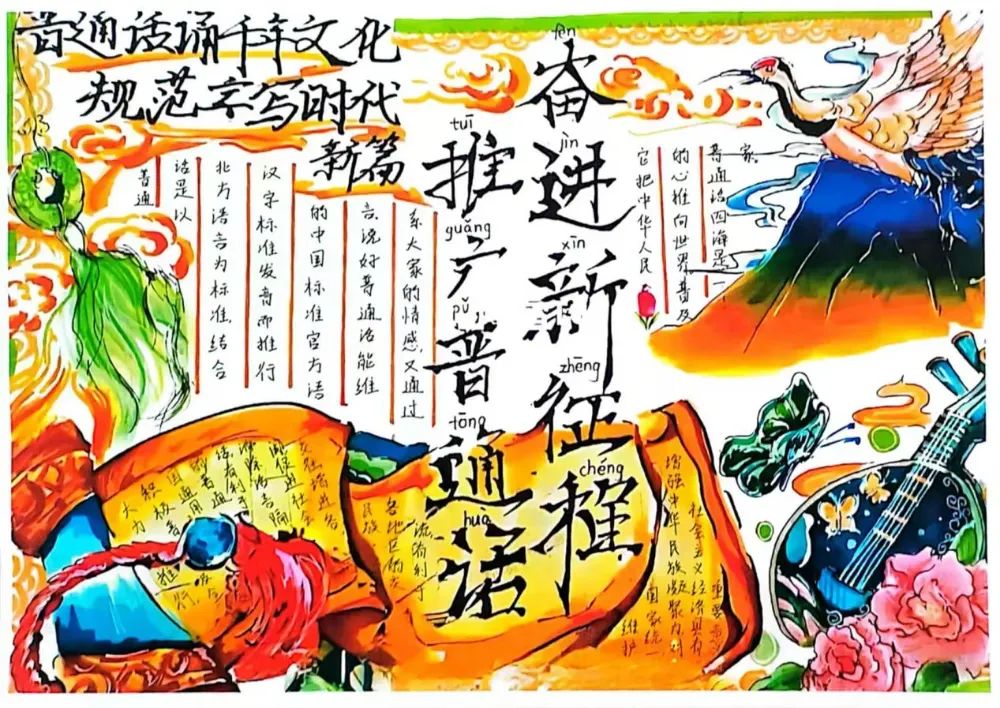 普通话诵千年文化
规范字写时代
新篇
tuī guǎng pǔ tōng huà
推广普通话
fèn jìn xīn zhēng chéng
奋进新征程
普通
话是以
北方语言为标准,结合
汉字标准发音而推行
的中国标准官方语
言,说好普通话能维
系大家的情感,又通过
它把中华人民
的心推向世界普及
普通话四海是一
家。
大力
积极
各地区
民族
维护
国家统一
增强中华民族凝聚力对
社会主义经济具有
重要意义